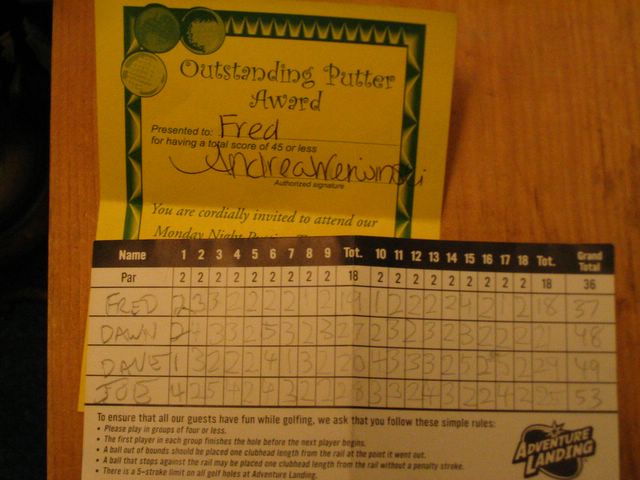 Outstanding Putter
Award
Presented to: Fred
for having a total score of 45 or less
Authorized signature
You are cordially invited to attend our
Monday Night
Name 1 2 3 4 5 6 7 8 9 Tot. 10 11 12 13 14 15 16 17 18 Tot. Grand Total
Par 2 2 2 2 2 2 2 2 2 18 2 2 2 2 2 2 2 2 2 18 36
FRED 2 3 3 2 2 2 2 1 2 19 1 2 2 2 2 4 2 1 2 18 37
DAWN 48
DAVE 49
JOE 53
To ensure that all our guests have fun while golfing, we ask that you follow these simple rules:
• Please play in groups of four or less.
• The first player in each group finishes the hole before the next player begins.
• A ball out of bounds should be placed one clubhead length from the rail at the point it went out.
• A ball that stops against the rail may be placed one clubhead length from the rail without a penalty stroke.
• There is a 5-stroke limit on all golf holes at Adventure Landing.
ADVENTURE
LANDING